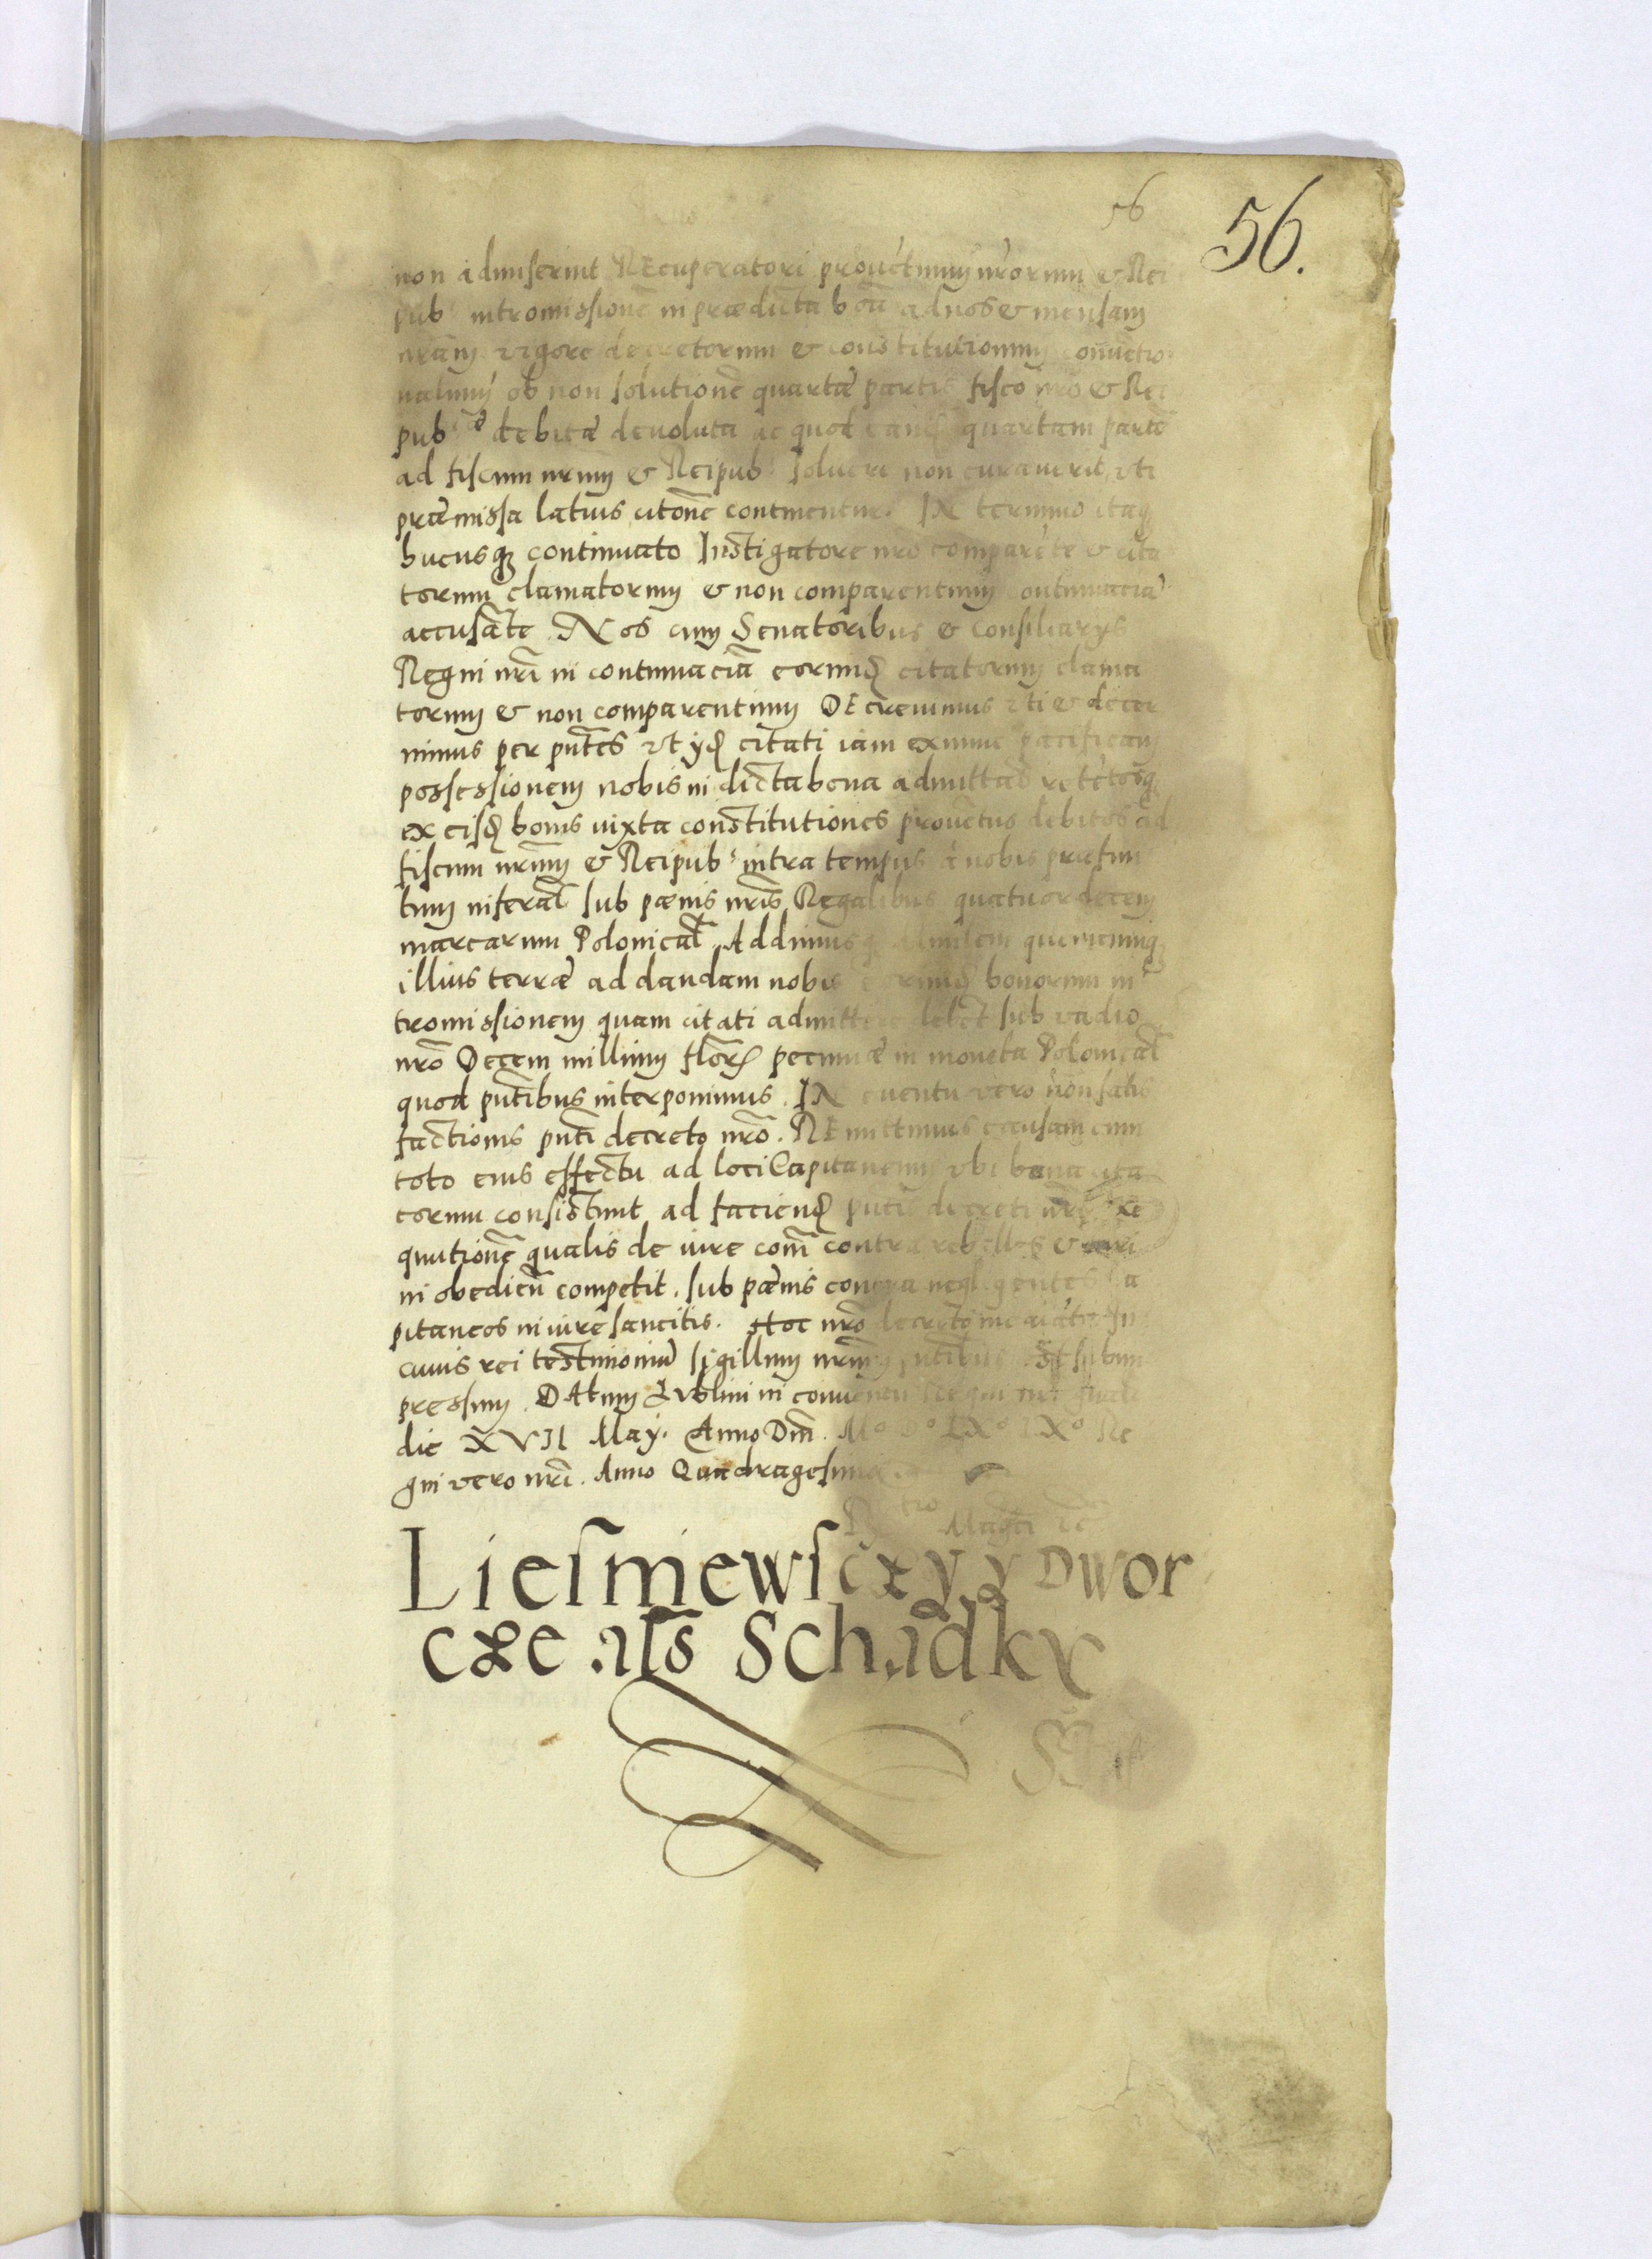 56
56.
non admiserint REcuperatori prouẽtuum nrorum & Rei
pub: intromissionẽ in prædicta boã ad nos & mensam
nram vigore decretorum & constitutionum conuẽtio
nalium ob non solutionẽ quartæ partis fisco nro & Rei
pubcæ debitæ deuoluta ac quod eand quartam partẽ
ad fiscum nrum & Reipub: soluere non curauerit, vti
præmissa latius citõne continentur. IN termino itaq
hucusq continuato Instigatore nro comparẽte & cita
torum clamatorum & non comparentium contumaciã
accusãte. Nos cum Senatoribus & Consiliarys
Regni nri in contumaciã eorund citatorum clama
torum & non comparentium DEcreuimus vti & decer
nimus per pntes vt yd citati iam exnunc pacificam
possessionem nobis in dicta bona admittãt retẽtosq
ex eisd bonis iuxta constitutiones prouẽtus debitos ad
fiscum nrum & Reipub: intra tempus a nobis præfini
tum inferãt sub pænis nris Regalibus quatuordecem
marcarum Polonicał. Addimusq quemcunq
illius terræ ad dandam nobis eorund bonorum in
tromissionem quam citati admittere debẽt sub vadio
nrõ Decem millium florꝫ pecuniæ in moneta Polonicał
quod pntibus interponimus. IN euentu vero non satis
factionis pnti decreto nrõ. REmittimus causam cum
toto eius effectu ad loci Capitaneum vbi bona cita
torum consistunt ad faciend pntis decreti nri exe
qutionẽ qualis de iure com contra rebelles & iuri
in obediẽn competit, sub pænis contra negligentes Ca
pitaneos in iure sancitis. Hoc nrõ decreto mediãte In
cuius rei testimoniũ sigillum nrum pntibus est subim
pressum. DAtum Lublini in conuentu Regni nri gnali
die XVII May. Anno Dni. Mo Do LXo IXo Re
gni vero nri. Anno Quadragesimo
Magci
Liesmiewsczky y Dwor
cze als Schadky